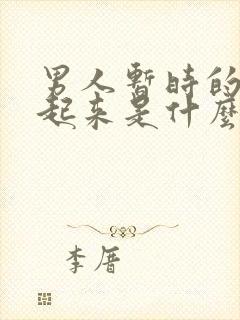 男人暫時的
起来是什麼
李厝